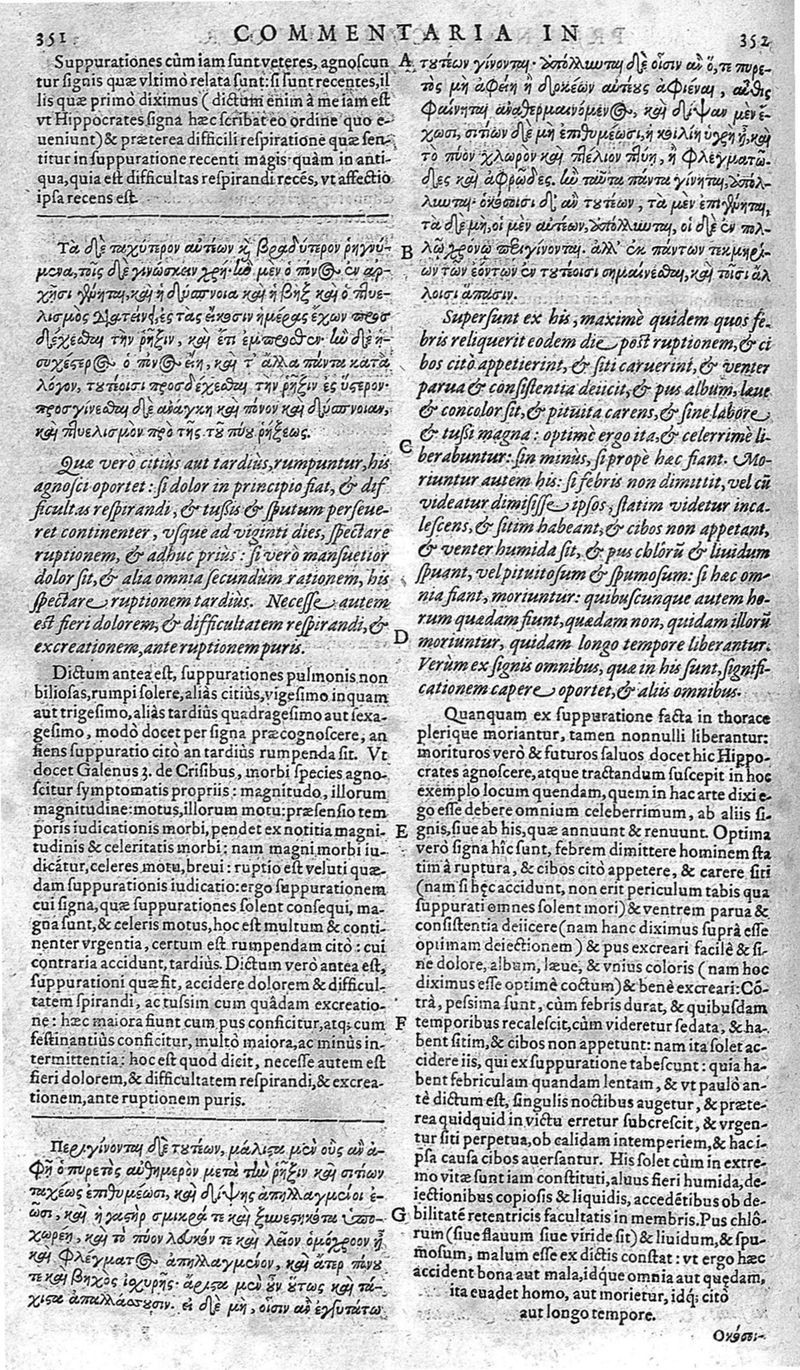 351
COMMENTARIA IN
352
Suppurationes cùm iam sunt veteres, agnoscun
tur signis quæ vltimo relata sunt: si sunt recentes, il
lis quæ primò diximus (dictum enim à me iam est
vt Hippocrates signa hæc scribat eo ordine quo e-
ueniunt) & præterea difficili respiratione quæ sen-
titur in suppuratione recenti magis quàm in anti-
qua, quia est difficultas respirandi recēs, vt affectio
ipsa recens est.
Τὰ δὲ ταχύτερον αὐτέων κỳ βραδύτερον ῥηγνύ-
μενα, τοῖς δὲ γινώσκειν χρή· ἢν μὲν ὁ πόνος ἐν ἀρ-
χῇσι γίνηται, καὶ ἡ δύσπνοια καὶ ἡ βὴξ καὶ ὁ πτυε-
λισμὸς διατείνῃ, ἐς τὰς εἴκοσιν ἡμέρας ἔχων προσ
δέχεσθαι τὴν ῥῆξιν, καὶ ἔτι ἔμπροσθεν· ἢν δὲ ἡ-
συχέστερος ὁ πόνος ἔῃ, καὶ τ' ἄλλα πάντα κατὰ
λόγον, τουτέοισι προσδέχεσθαι τὴν ῥῆξιν ἐς ὕστερον·
προσγίνεσθαι δὲ ἀνάγκη καὶ πόνον καὶ δύσπνοιαν,
καὶ πτυελισμὸν πρὸ τῆς τοῦ πύου ῥήξεως.
Quæ verò citiùs aut tardiùs, rumpuntur, his
agnosci oportet: si dolor in principio fiat, & dif
ficultas respirandi, & tussis & sputum perseue-
ret continenter, vsque ad viginti dies, spectare
ruptionem, & adhuc priùs: si verò mansuetior
dolor sit, & alia omnia secundùm rationem, his
spectare ruptionem tardiùs. Necesse autem
est fieri dolorem, & difficultatem respirandi, &
excreationem, ante ruptionem puris.
Dictum antea est, suppurationes pulmonis non
biliosas, rumpi solere, aliàs citiùs, vigesimo inquam
aut trigesimo, aliàs tardiùs quadragesimo aut sexa-
gesimo, modò docet per signa præcognoscere, an
fiens suppuratio citò an tardiùs rumpenda sit. Vt
docet Galenus 3. de Crisibus, morbi species agno-
scitur symptomatis propriis: magnitudo, illorum
magnitudine: motus, illorum motu: præsensio tem
poris iudicationis morbi, pendet ex notitia magni-
tudinis & celeritatis morbi: nam magni morbi iu-
dicātur, celeres motu, breui: ruptio est veluti quæ-
dam suppurationis iudicatio: ergo suppurationem
cui signa, quæ suppurationes solent consequi, ma-
gna sunt, & celeris motus, hoc est multum & conti-
nenter vrgentia, certum est rumpendam citò: cui
contraria accidunt, tardiùs. Dictum verò antea est,
suppurationi quæ fit, accidere dolorem & difficul-
tatem spirandi, ac tussim cum quâdam excreatio-
ne: hæc maiora fiunt cum pus conficitur, atq; cum
festinantiùs conficitur, multò maiora, ac minùs in-
termittentia: hoc est quod dicit, necesse autem est
fieri dolorem, & difficultatem respirandi, & excrea-
tionem, ante ruptionem puris.
Περιγίνονται δὲ τουτέων, μάλιστα μὲν οὓς ἂν ἀ-
φῇ ὁ πυρετὸς αὐθημερὸν μετὰ τὴν ῥῆξιν καὶ σιτίων
ταχέως ἐπιθυμέωσι, καὶ δίψης ἀπηλλαγμένοι ἔ-
ωσι, καὶ ἡ γαστὴρ σμικρά τε καὶ ξυνεστηκότα ὑπο-
χωρέῃ, καὶ τὸ πύον λευκόν τε καὶ λεῖον ὁμόχροον ᾖ
καὶ φλέγματος ἀπηλλαγμένον, καὶ ἄτερ πόνου
τε καὶ βηχὸς ἰσχυρῆς· ἄριστα μὲν οὖν οὕτως καὶ τά-
χιστα ἀπαλλάσσουσιν. εἰ δὲ μὴ, οἷσιν ἂν ἐγγυτάτω
A
B
C
D
E
F
G
τουτέων γίνονται· ἀπόλλυνται δὲ οἷσιν ἂν ὅ, τε πυρε-
τὸς μὴ ἀφέῃ ἢ δοκέων αὐτέους ἀφιέναι, αὖθις
φαίνηται ἀναθερμαινόμενος, καὶ δίψαν μὲν ἔ-
χωσι, σιτίων δὲ μὴ ἐπιθυμέωσι, ἢ κοιλίη ὑγρὴ ᾖ, καὶ
τὸ πύον χλωρὸν καὶ πέλιον πτύῃ, ἢ φλεγματῶ-
δες καὶ ἀφρῶδες. ἢν ταῦτα πάντα γίνηται, ἀπόλ-
λυνται· ὁκόσοισι δ' ἂν τουτέων, τὰ μὲν ἐπιγένηται,
τὰ δὲ μὴ, οἱ μὲν αὐτέων, ἀπόλλυνται, οἱ δὲ ἐν πολ-
λῷ χρόνῳ περιγίνονται. ἀλλ' ἐκ πάντων τεκμηρί-
ων τῶν ἐόντων ἐν τουτέοισι σημαίνεσθαι, καὶ τοῖσι ἄλ
λοισι ἅπασιν.
Supersunt ex his, maximè quidem quos fe-
bris reliquerit eodem die post ruptionem, & ci
bos citò appetierint, & siti caruerint, & venter
parua & consistentia deiicit, & pus album, læue
& concolor sit, & pituita carens, & sine labore
& tussi magna: optimè ergo ita, & celerrimè li-
berabuntur: sin minùs, si propè hæc fiant. Mo-
riuntur autem his: si febris non dimittit, vel cū
videatur dimisisse ipsos, statim videtur inca-
lescens, & sitim habeant, & cibos non appetant,
& venter humida sit, & pus chlōrū & liuidum
spuant, vel pituitosum & spumosum: si hæc om-
nia fiant, moriuntur: quibuscunque autem ho-
rum quædam fiunt, quædam non, quidam illorū
moriuntur, quidam longo tempore liberantur.
Verùm ex signis omnibus, quæ in his sunt, signifi-
cationem capere oportet, & aliis omnibus.
Quanquam ex suppuratione facta in thorace
plerique moriantur, tamen nonnulli liberantur:
morituros verò & futuros saluos docet hic Hippo-
crates agnoscere, atque tractandum suscepit in hoc
exemplo locum quendam, quem in hac arte dixi e-
go esse debere omnium celeberrimum, ab aliis si-
gnis, siue ab his, quæ annuunt & renuunt. Optima
verò signa hîc sunt, febrem dimittere hominem sta
tim à ruptura, & cibos citò appetere, & carere siti
(nam si hęc accidunt, non erit periculum tabis qua
suppurati omnes solent mori) & ventrem parua &
consistentia deiicere (nam hanc diximus suprà esse
optimam deiectionem) & pus excreari facilè & si-
ne dolore, album, læue, & vnius coloris (nam hoc
diximus esse optimè coctum) & benè excreari: Cō-
trà, pessima sunt, cùm febris durat, & quibusdam
temporibus recalescit, cùm videretur sedata, & ha-
bent sitim, & cibos non appetunt: nam ita solet ac-
cidere iis, qui ex suppuratione tabescunt: quia ha-
bent febriculam quandam lentam, & vt paulò an-
tè dictum est, singulis noctibus augetur, & præte-
rea quidquid in victu erretur subcrescit, & vrgen-
tur siti perpetua, ob calidam intemperiem, & hac i-
psa causa cibos auersantur. His solet cùm in extre-
mo vitæ sunt iam constituti, aluus fieri humida, de-
iectionibus copiosis & liquidis, accedētibus ob de-
bilitatē retentricis facultatis in membris. Pus chlō-
rum (siue flauum siue viride sit) & liuidum, & spu-
mosum, malum esse ex dictis constat: vt ergo hæc
accident bona aut mala, idque omnia aut quędam,
ita euadet homo, aut morietur, idq; citò
aut longo tempore.
Ὁκόσοι-